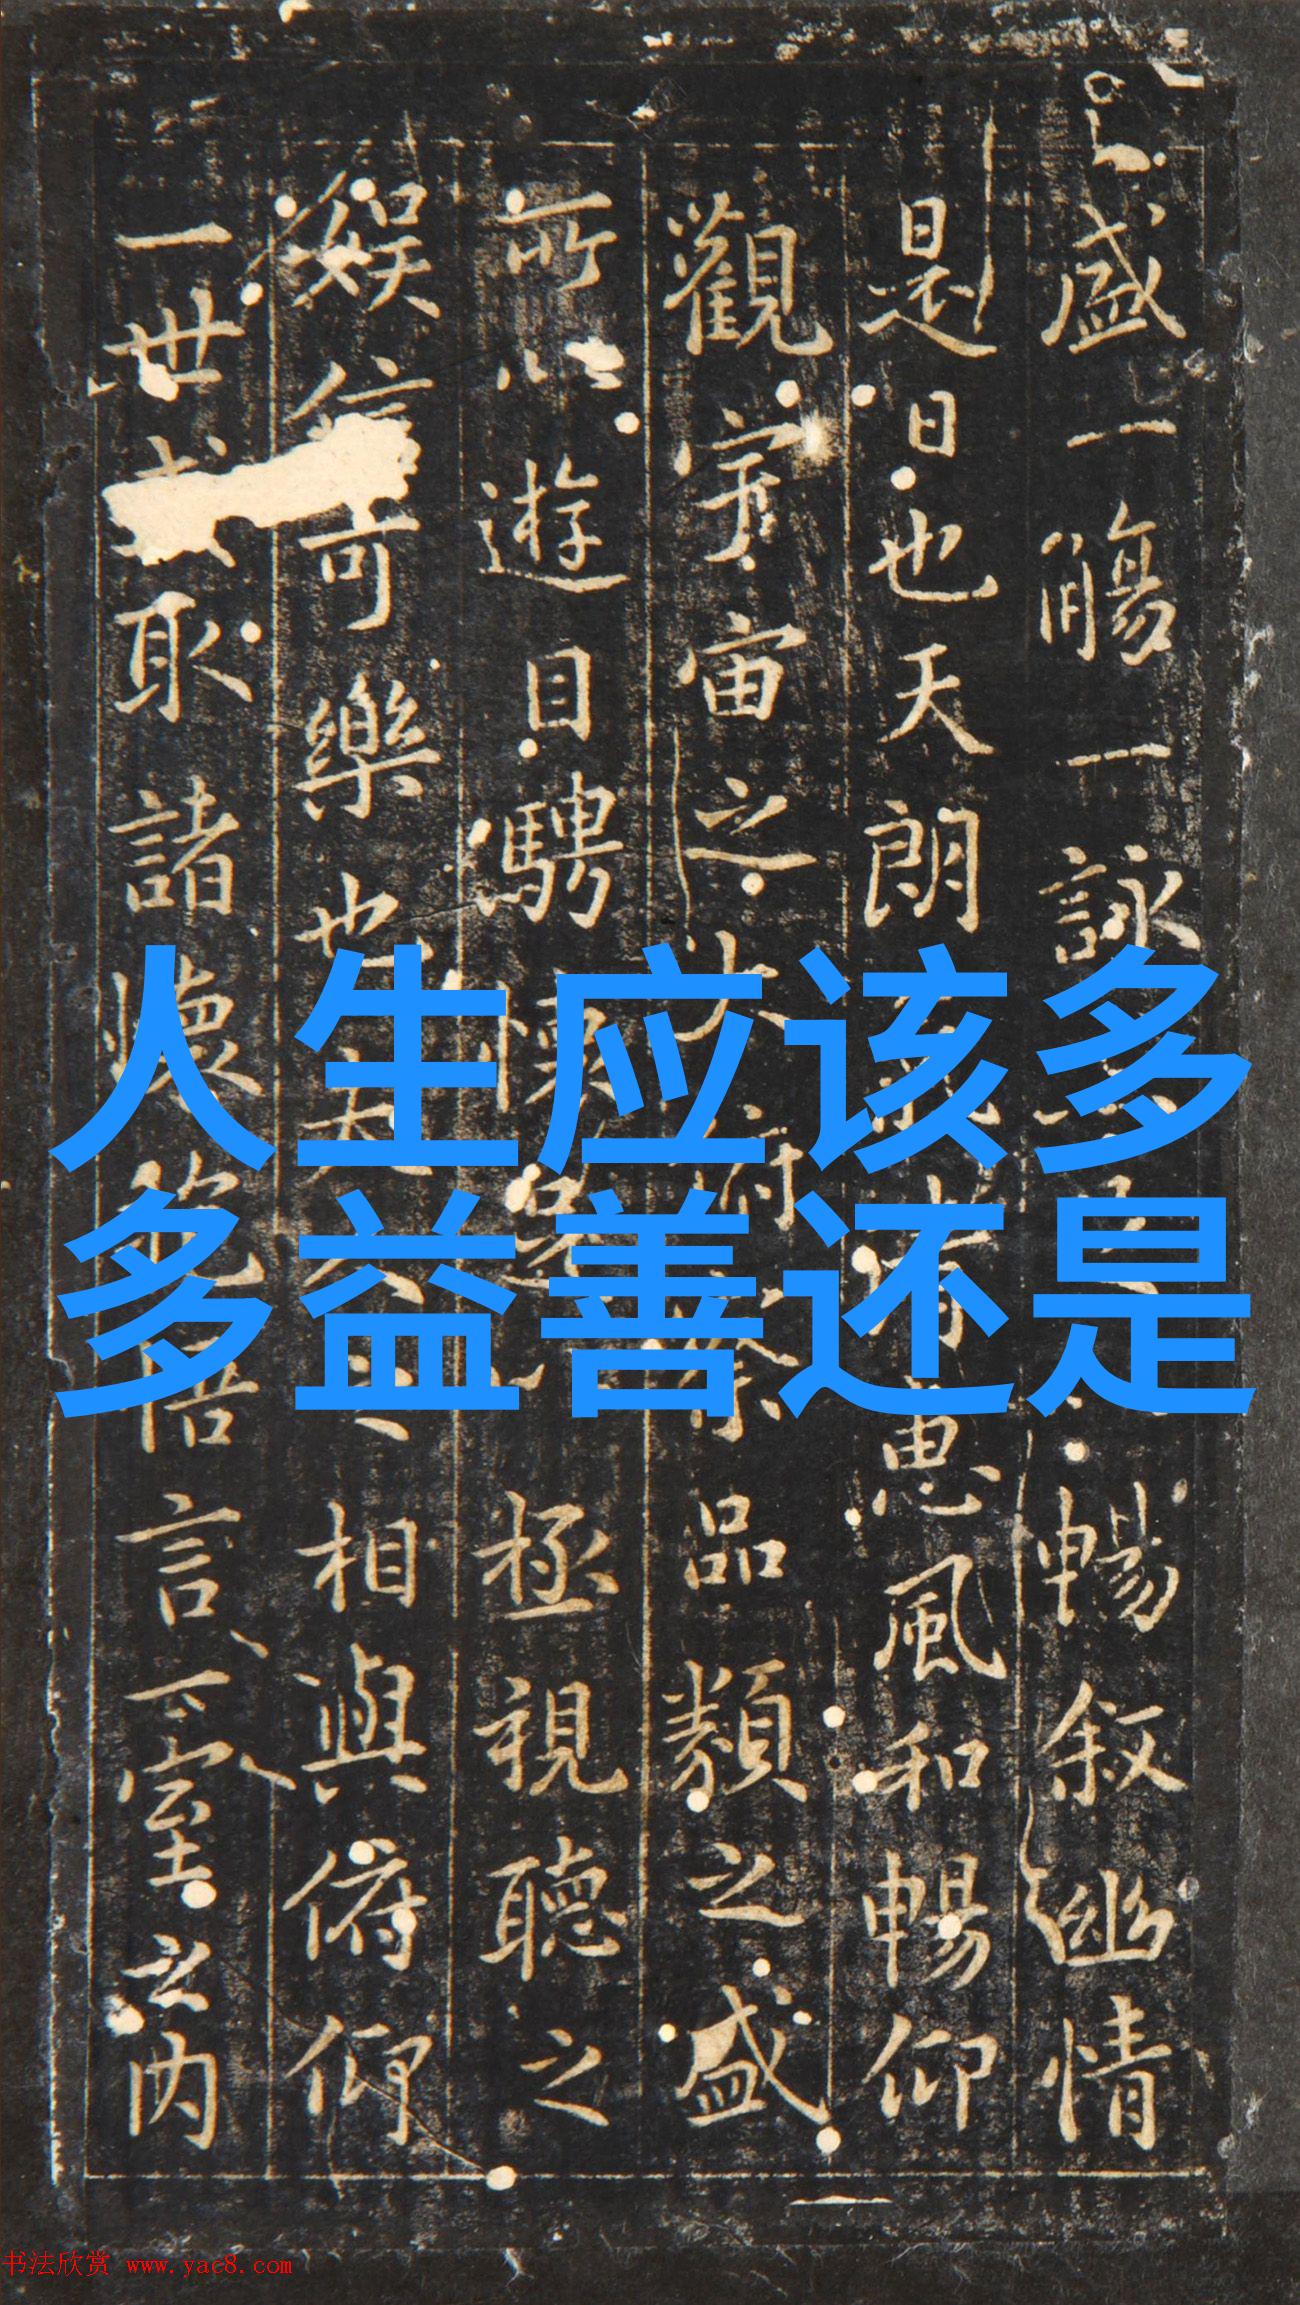 盛一觴一詠
暢叙幽情
是日也天朗
惠風和暢仰
觀宇宙之大俯察品類之盛
所以遊目騁懷
極視聽之
娱信可樂也夫
相與俯仰
一世或取諸懷抱悟言一室之内
人生应该多
多益善还是
书法欣赏 www.yac8.com